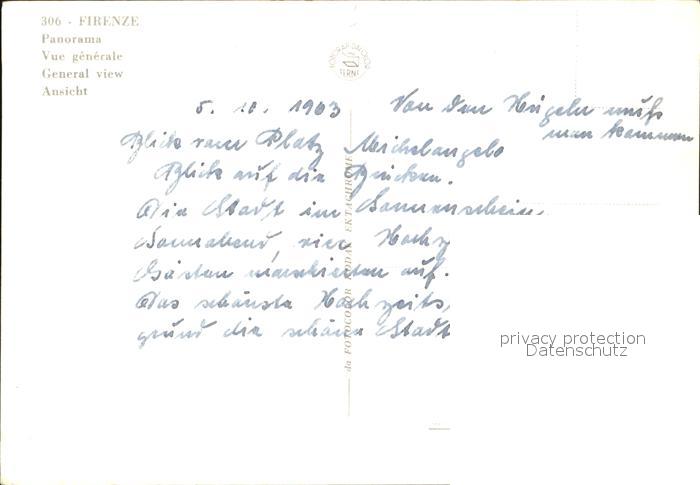 306 - FIRENZE
Panorama
Vue générale
General view
Ansicht
5. 10. 1963 Von den Hügeln muß
man kommen
Blick vom Platz Michelangelo
Blick auf die Brücken.
Die Stadt im Sonnenschein.
Sonnabend, vier Hochz
Gästen marschierten auf.
Das schönste Hochzeits,
grund die schöne Stadt
da FOTOCOLOR KODAK EKTACHROME
privacy protection
Datenschutz